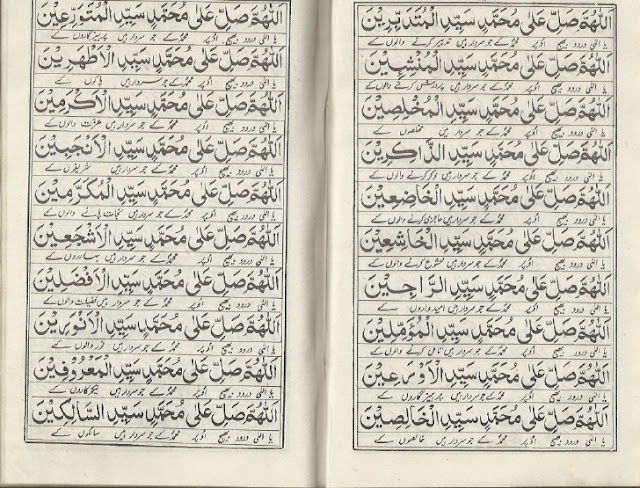 اَللّٰهُمَّ صَلِّ عَلٰى مُحَمَّدٍ سَيِّدِ الْمُتَدَبِّرِيْنَ
یا الٰہی درود بھیج اوپر محمدؐ کے جو سردار ہیں تدبیر کرنے والوں کے
اَللّٰهُمَّ صَلِّ عَلٰى مُحَمَّدٍ سَيِّدِ الْمُنْشِئِيْنَ
یا الٰہی درود بھیج اوپر محمدؐ کے جو سردار ہیں پرورش کرنے والوں کے
اَللّٰهُمَّ صَلِّ عَلٰى مُحَمَّدٍ سَيِّدِ الْمُخْلِصِيْنَ
یا الٰہی درود بھیج اوپر محمدؐ کے جو سردار ہیں مخلصوں کے
اَللّٰهُمَّ صَلِّ عَلٰى مُحَمَّدٍ سَيِّدِ الذَّاكِرِيْنَ
یا الٰہی درود بھیج اوپر محمدؐ کے جو سردار ہیں ذکر کرنے والوں کے
اَللّٰهُمَّ صَلِّ عَلٰى مُحَمَّدٍ سَيِّدِ الْخَاضِعِيْنَ
یا الٰہی درود بھیج اوپر محمدؐ کے جو سردار ہیں عاجزی کرنے والوں کے
اَللّٰهُمَّ صَلِّ عَلٰى مُحَمَّدٍ سَيِّدِ الْخَاشِعِيْنَ
یا الٰہی درود بھیج اوپر محمدؐ کے جو سردار ہیں خشوع کرنے والوں کے
اَللّٰهُمَّ صَلِّ عَلٰى مُحَمَّدٍ سَيِّدِ الرَّاجِيْنَ
یا الٰہی درود بھیج اوپر محمدؐ کے جو سردار ہیں امیدواروں کے
اَللّٰهُمَّ صَلِّ عَلٰى مُحَمَّدٍ سَيِّدِ الْمُؤَمِّلِيْنَ
یا الٰہی درود بھیج اوپر محمدؐ کے جو سردار ہیں تامل کرنے والوں کے
اَللّٰهُمَّ صَلِّ عَلٰى مُحَمَّدٍ سَيِّدِ الْاَوْرَعِيْنَ
یا الٰہی درود بھیج اوپر محمدؐ کے جو سردار ہیں پرہیز گاروں کے
اَللّٰهُمَّ صَلِّ عَلٰى مُحَمَّدٍ سَيِّدِ الْخَالِصِيْنَ
یا الٰہی درود بھیج اوپر محمدؐ کے جو سردار ہیں خالصوں کے
اَللّٰهُمَّ صَلِّ عَلٰى مُحَمَّدٍ سَيِّدِ الْمُتَوَرِّعِيْنَ
یا الٰہی درود بھیج اوپر محمدؐ کے جو سردار ہیں پرہیز گاروں کے
اَللّٰهُمَّ صَلِّ عَلٰى مُحَمَّدٍ سَيِّدِ الْاَطْهَرِيْنَ
یا الٰہی درود بھیج اوپر محمدؐ کے جو سردار ہیں پاکوں کے
اَللّٰهُمَّ صَلِّ عَلٰى مُحَمَّدٍ سَيِّدِ الْاَكْرَمِيْنَ
یا الٰہی درود بھیج اوپر محمدؐ کے جو سردار ہیں عزت والوں کے
اَللّٰهُمَّ صَلِّ عَلٰى مُحَمَّدٍ سَيِّدِ الْاَنْجَبِيْنَ
یا الٰہی درود بھیج اوپر محمدؐ کے جو سردار ہیں شریفوں کے
اَللّٰهُمَّ صَلِّ عَلٰى مُحَمَّدٍ سَيِّدِ الْمُكَرَّمِيْنَ
یا الٰہی درود بھیج اوپر محمدؐ کے جو سردار ہیں نجات پانے والوں کے
اَللّٰهُمَّ صَلِّ عَلٰى مُحَمَّدٍ سَيِّدِ الْاَشْجَعِيْنَ
یا الٰہی درود بھیج اوپر محمدؐ کے جو سردار ہیں بہادروں کے
اَللّٰهُمَّ صَلِّ عَلٰى مُحَمَّدٍ سَيِّدِ الْاَفْضَلِيْنَ
یا الٰہی درود بھیج اوپر محمدؐ کے جو سردار ہیں فضیلت والوں کے
اَللّٰهُمَّ صَلِّ عَلٰى مُحَمَّدٍ سَيِّدِ الْاَنْوَرِيْنَ
یا الٰہی درود بھیج اوپر محمدؐ کے جو سردار ہیں نور والوں کے
اَللّٰهُمَّ صَلِّ عَلٰى مُحَمَّدٍ سَيِّدِ الْمَعْرُوْفِيْنَ
یا الٰہی درود بھیج اوپر محمدؐ کے جو سردار ہیں نیکو کاروں کے
اَللّٰهُمَّ صَلِّ عَلٰى مُحَمَّدٍ سَيِّدِ السَّالِكِيْنَ
یا الٰہی درود بھیج اوپر محمدؐ کے جو سردار ہیں سالکوں کے